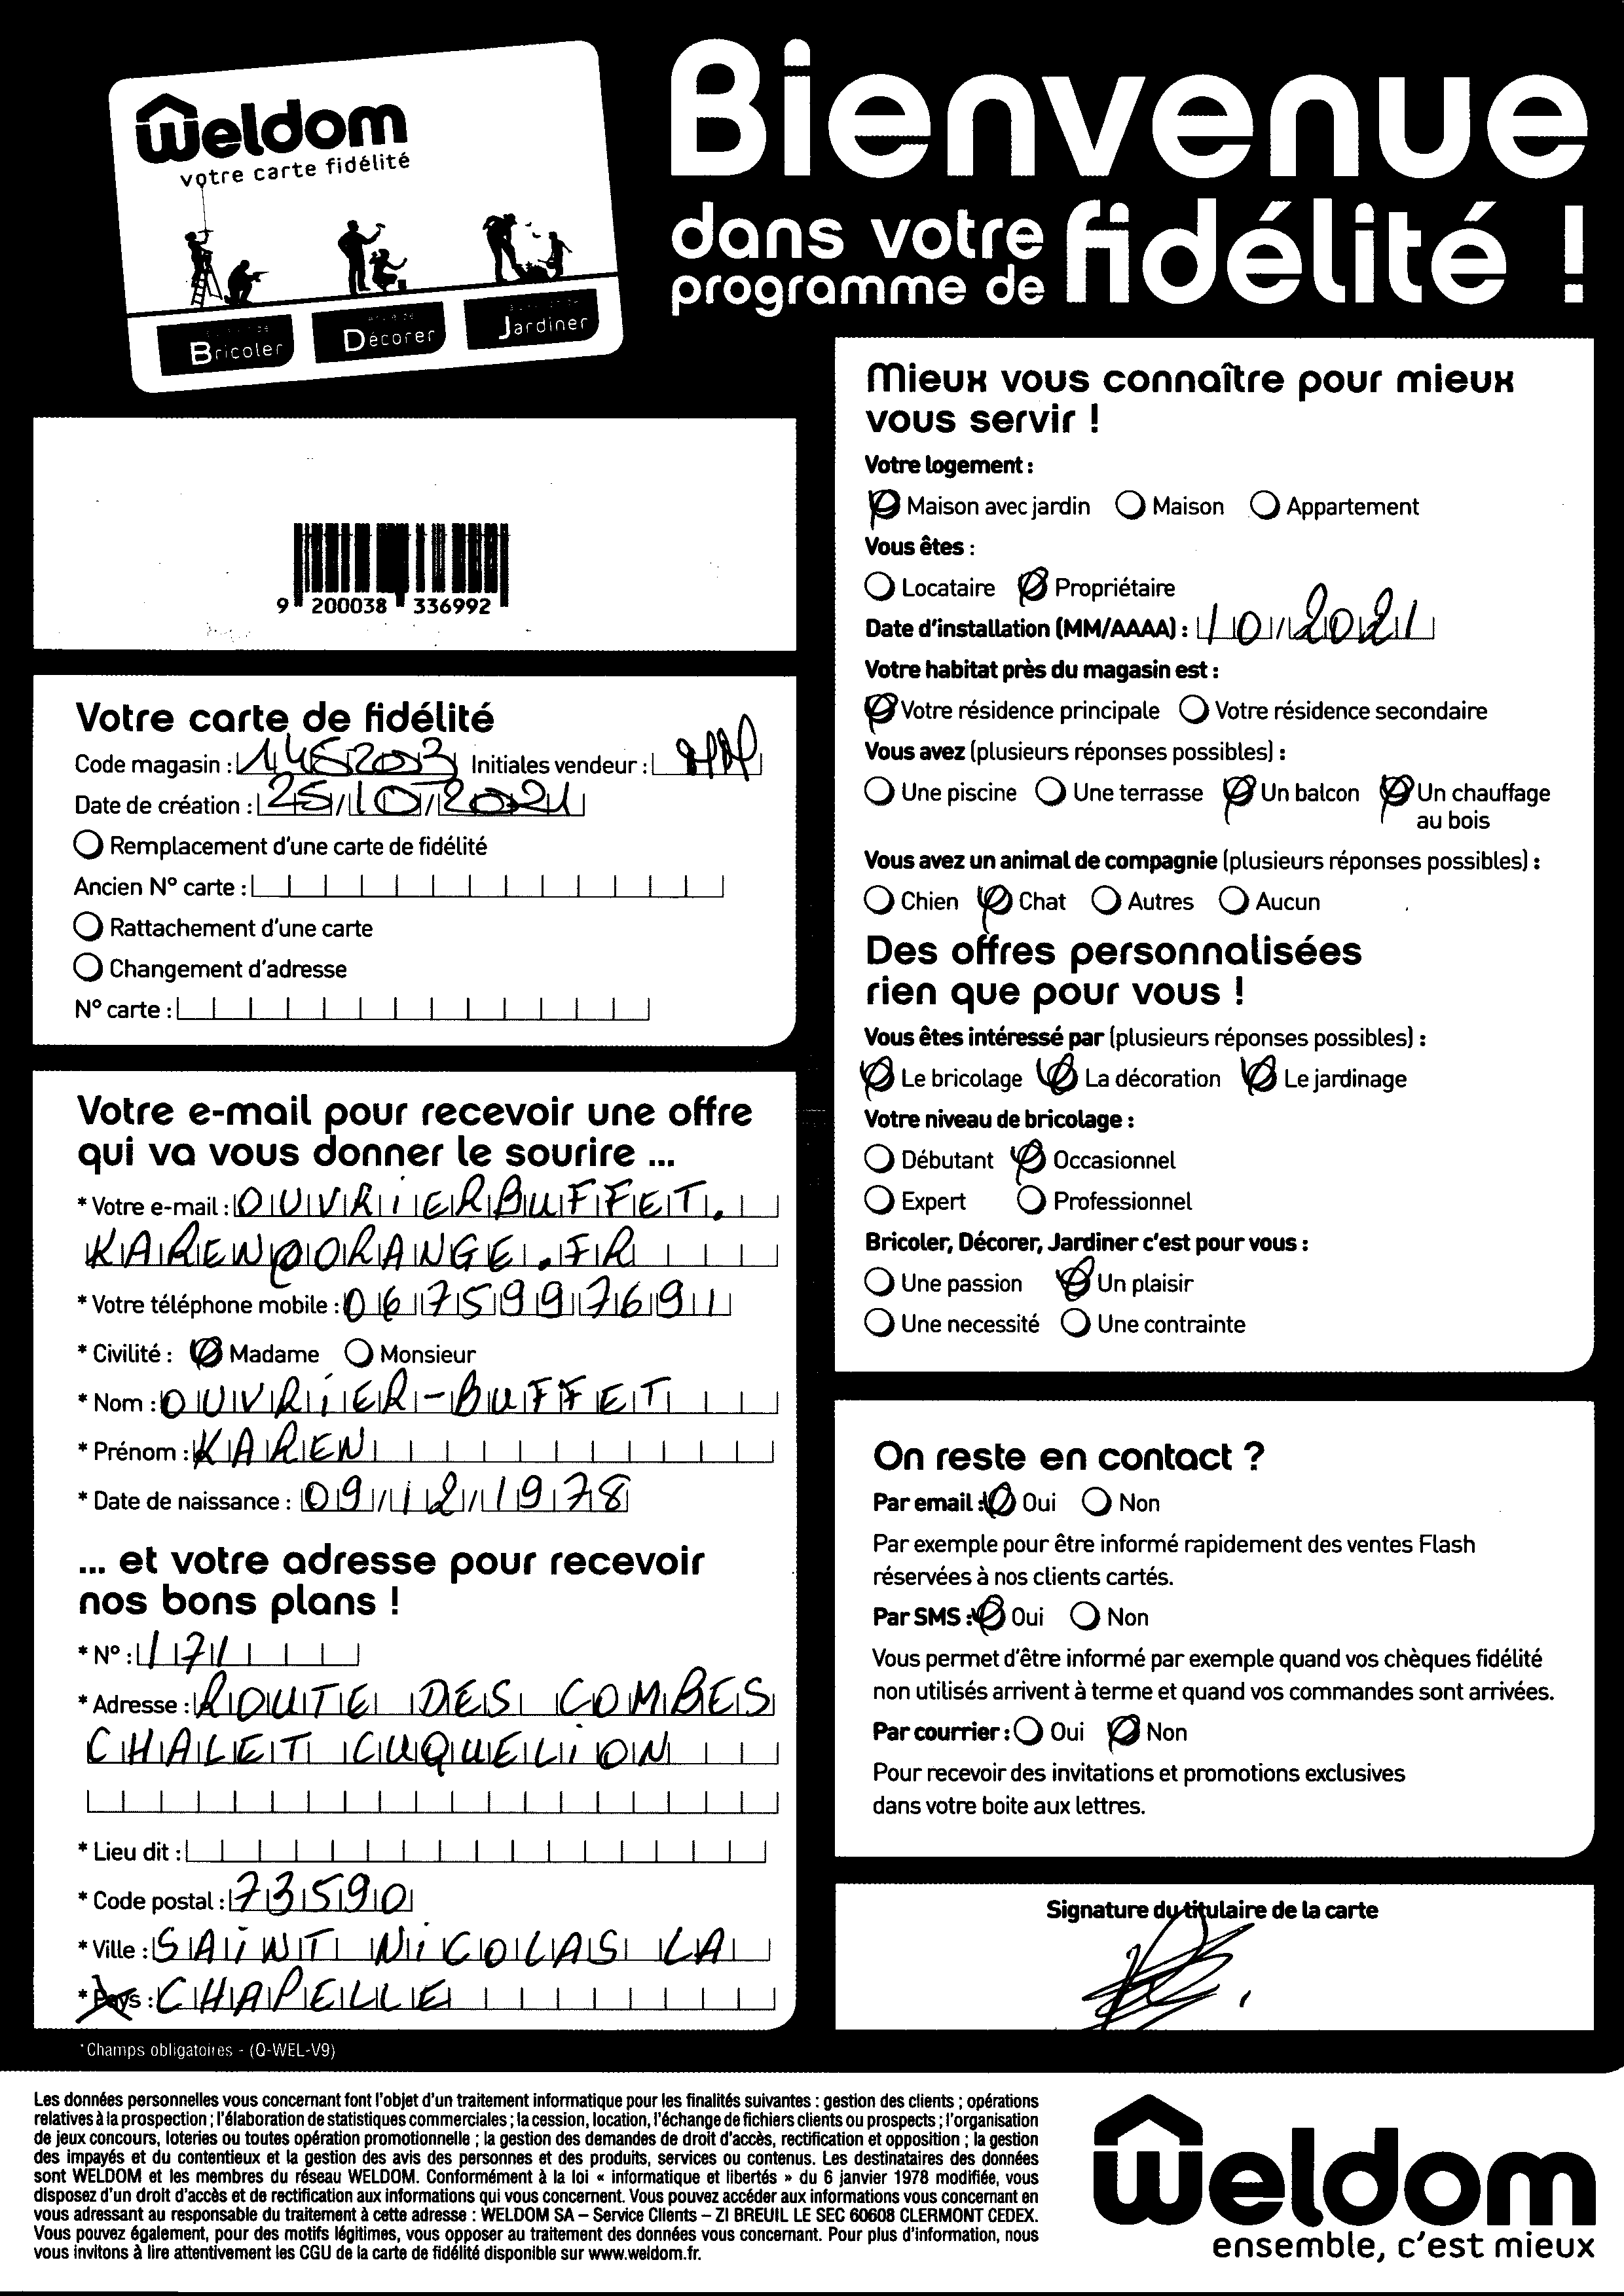 Weldom
votre carte fidélité
Bricoler
Décorer
Jardiner
Bienvenue
dans votre
programme de fidélité !
9 200038 336992
Votre carte de fidélité
Code magasin : 145203 Initiales vendeur :
Date de création : 25/10/2021
Remplacement d'une carte de fidélité
Ancien N° carte :
Rattachement d'une carte
Changement d'adresse
N° carte :
Votre e-mail pour recevoir une offre
qui va vous donner le sourire ...
* Votre e-mail : OUVRIERBUFFET.
KAREN@ORANGE.FR
* Votre téléphone mobile : 0675997691
* Civilité : Madame Monsieur
* Nom : OUVRIER-BUFFET
* Prénom : KAREN
* Date de naissance : 09/12/1978
... et votre adresse pour recevoir
nos bons plans !
* N° : 171
* Adresse : ROUTE DES COMBES
CHALET CUQUELION
* Lieu dit :
* Code postal : 73590
* Ville : SAINT NICOLAS LA
* Pays : CHAPELLE
*Champs obligatoires - (Q-WEL-V9)
Mieux vous connaître pour mieux
vous servir !
Votre logement :
Maison avec jardin Maison Appartement
Vous êtes :
Locataire Propriétaire
Date d'installation (MM/AAAA) : 10/2021
Votre habitat près du magasin est :
Votre résidence principale Votre résidence secondaire
Vous avez (plusieurs réponses possibles) :
Une piscine Une terrasse Un balcon Un chauffage
au bois
Vous avez un animal de compagnie (plusieurs réponses possibles) :
Chien Chat Autres Aucun
Des offres personnalisées
rien que pour vous !
Vous êtes intéressé par (plusieurs réponses possibles) :
Le bricolage La décoration Le jardinage
Votre niveau de bricolage :
Débutant Occasionnel
Expert Professionnel
Bricoler, Décorer, Jardiner c'est pour vous :
Une passion Un plaisir
Une necessité Une contrainte
On reste en contact ?
Par email : Oui Non
Par exemple pour être informé rapidement des ventes Flash
réservées à nos clients cartés.
Par SMS : Oui Non
Vous permet d'être informé par exemple quand vos chèques fidélité
non utilisés arrivent à terme et quand vos commandes sont arrivées.
Par courrier : Oui Non
Pour recevoir des invitations et promotions exclusives
dans votre boite aux lettres.
Signature du titulaire de la carte
Les données personnelles vous concernant font l'objet d'un traitement informatique pour les finalités suivantes : gestion des clients ; opérations
relatives à la prospection ; l'élaboration de statistiques commerciales ; la cession, location, l'échange de fichiers clients ou prospects ; l'organisation
de jeux concours, loteries ou toutes opération promotionnelle ; la gestion des demandes de droit d'accès, rectification et opposition ; la gestion
des impayés et du contentieux et la gestion des avis des personnes et des produits, services ou contenus. Les destinataires des données
sont WELDOM et les membres du réseau WELDOM. Conformément à la loi « informatique et libertés » du 6 janvier 1978 modifiée, vous
disposez d'un droit d'accès et de rectification aux informations qui vous concernent. Vous pouvez accéder aux informations vous concernant en
vous adressant au responsable du traitement à cette adresse : WELDOM SA – Service Clients – ZI BREUIL LE SEC 60608 CLERMONT CEDEX.
Vous pouvez également, pour des motifs légitimes, vous opposer au traitement des données vous concernant. Pour plus d'information, nous
vous invitons à lire attentivement les CGU de la carte de fidélité disponible sur www.weldom.fr.
Weldom
ensemble, c'est mieux